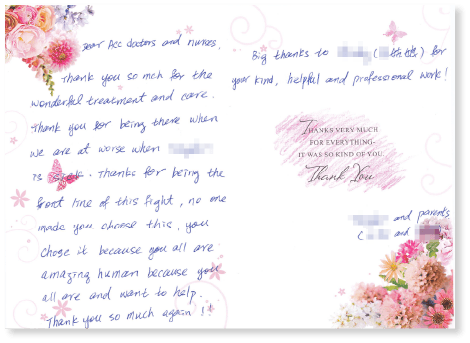 Dear Acc doctors and nurses,
Thank you so mch for the
wonderful treatment and care.
Thank you for being there when
we are at worse when
is . Thanks for being the
front line of this fight, no one
made you choose this, you
chose it because you all are
amazing human because you
all are and want to help.
Thank you so much again !!
Big thanks to ( ) for
your kind, helpful and professional work!
THANKS VERY MUCH
FOR EVERYTHING-
IT WAS SO KIND OF YOU.
Thank You
and parents
( and )